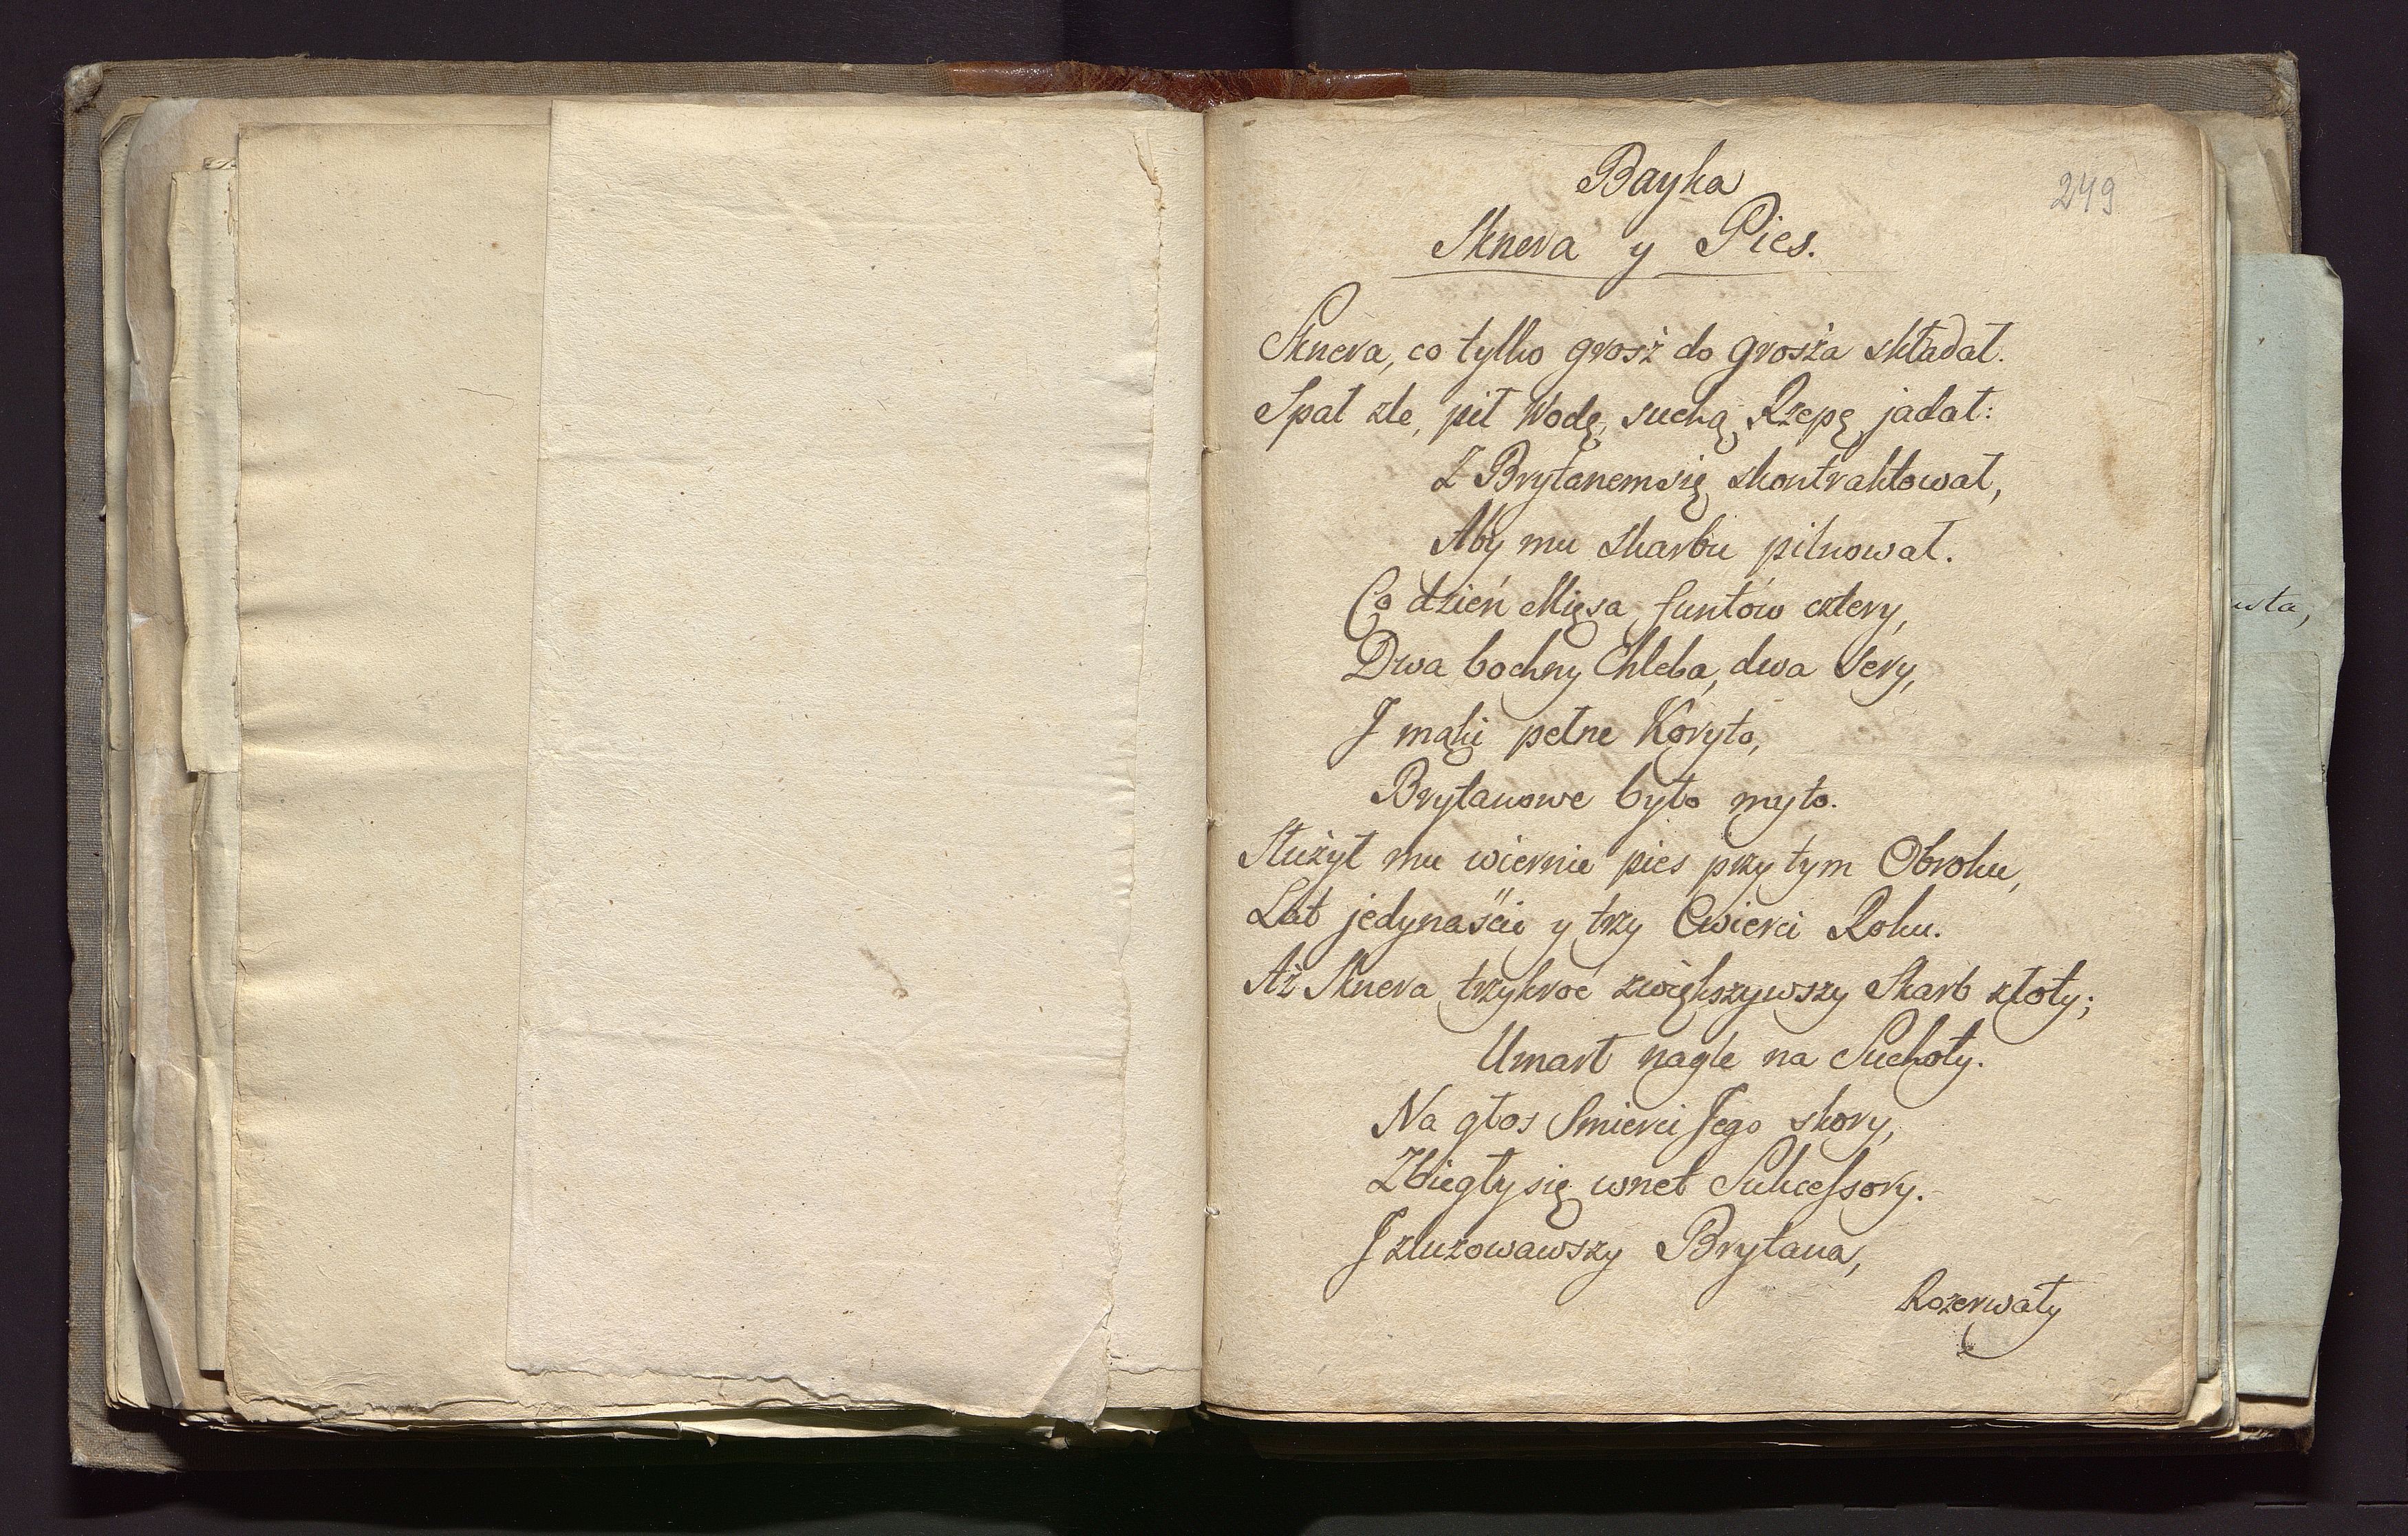 249
Bayka
Sknera y Pies.
Sknera, co tylko grosż do grosża składał.
Spał zle, pił Wodę, suchą Rzepę jadał:
Z Brytanem się skontraktował,
Aby mu Skarbu pilnował.
Co dzień Mięsa funtów cztery,
Dwa bochny Chleba, dwa Sery,
I mąki pełne Koryto,
Brytanowe było myto.
Służył mu wiernie pies przy tym Obroku,
Lat jedynaście y trzy Cwierci Roku.
Aż Sknera trzykroć zwiększywszy Skarb złoty;
Umarł nagle na Suchoty.
Na głos Smierci Jego skory,
Zbiegły się wnet Sukcessory.
I zluzowawszy Brytana,
Rozerwały
usta,